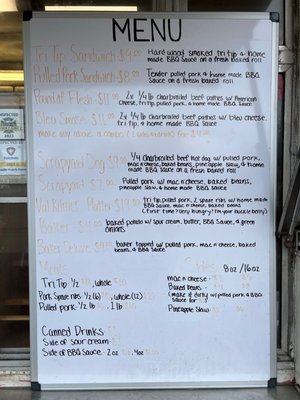 MENU
Tri Tip Sandwich $9.00 Hard wood smoked tri tip & home
made BBQ Sauce on a fresh baked roll
Pulled Pork Sandwich $8.00 Tender pulled pork & home made BBQ
Sauce on a fresh baked roll
Pound of Flesh $11.00 2x 1/4 lb charbroiled beef patties w/ American
Cheese, tri tip, pulled pork, & home made BBQ Sauce.
Bleu Swiss $11.00 2x 1/4 lb charbroiled beef patties w/ cheese,
tri tip, & home made BBQ Sauce
make any above a combo
Scrappyard Dog $9.00 1/4 charbroiled beef hot dog w/ pulled pork,
mac n cheese, baked beans, pineapple slaw, & home
made BBQ sauce on a fresh baked roll
Scrappyard Pulled pork w/ mac n cheese, baked beans,
pineapple slaw, & home made BBQ sauce
Val Kilmer Platter tri tip, pulled pork, 2 spare ribs w/ home made
BBQ Sauce, mac n cheese, baked beans
(First time? Very hungry? I'm your huckleberry)
Baker baked potato w/ sour cream, butter, BBQ Sauce, & green
onions
Baker Deluxe baker topped w/ pulled pork, mac n cheese, baked
beans, & BBQ Sauce
Meats
Tri Tip 1/2 , whole
Pork Spare ribs 1/2 (6) , whole (12)
Pulled pork 1/2 lb , 1 lb
Sides 8oz / 16oz
mac n cheese
Baked beans
(make it dirty w/ pulled pork & BBQ
sauce for
Pineapple Slaw
Canned Drinks
Side of sour cream
Side of BBQ Sauce - 2 oz , 4oz